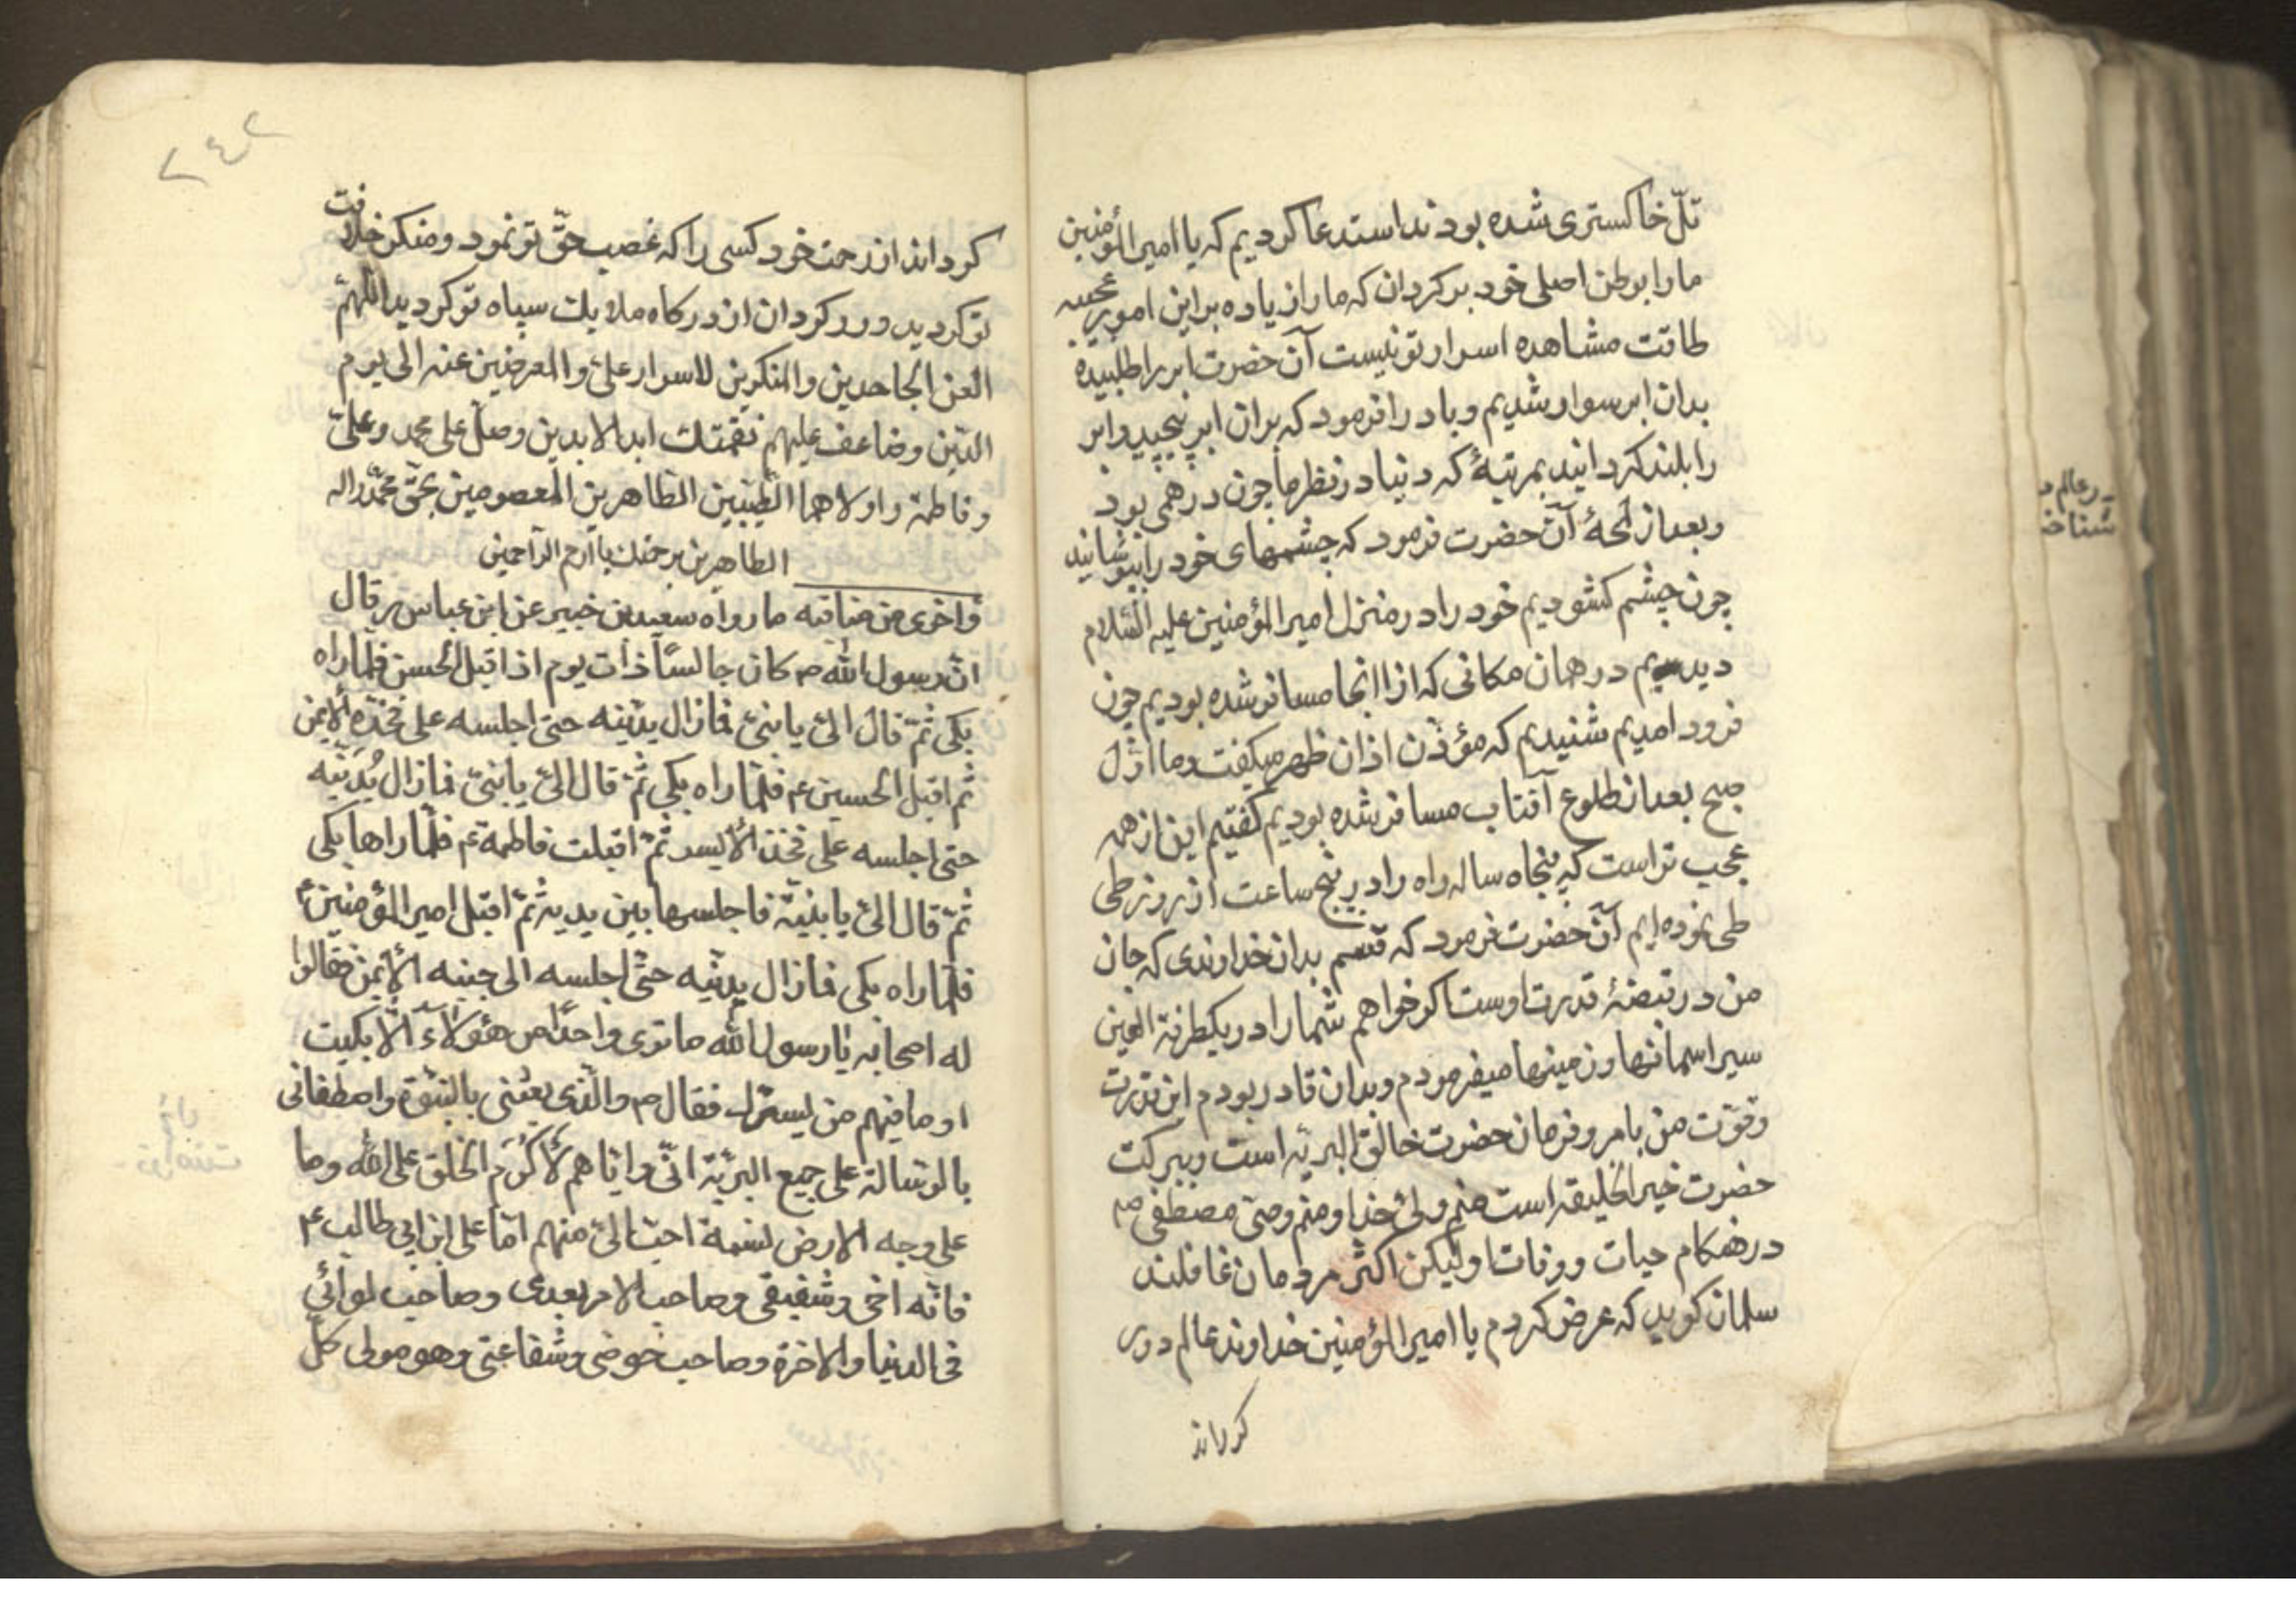 تلّ خاکستری شده بودند استدعا کردیم که یا امیر المؤمنین
ما را بوطن اصلی خود برکردان که ما را زیاده براین امور عجیبه
طاقت مشاهده اسرار تو نیست آن حضرت ابر را طلبیده
بدان ابر سوار شدیم و باد را فرمود که بران ابر پیچید و ابر
را بلند کردانید بمرتبهٔ که دنیا در نظر ما چون درهمی بود
و بعد از لمحهٔ آن حضرت فرمود که چشمهای خود را بپوشانید
چون چشم کشودیم خود را در منزل امیر المؤمنین علیه السّلام
دیدیم در همان مکانی که از انجا مسافر شده بودیم چون
فرود امدیم شنیدیم که مؤذن اذان ظهر میکفت و ما اوّل
صبح بعد از طلوع آفتاب مسافر شده بودیم کفتیم این از همه
عجب تر است که پنجاه ساله راه را در پنج ساعت از روز طی
طی نموده ایم آن حضرت فرمود که قسم بدان خداوندی که جان
من در قبضهٔ قدرت اوست اکر خواهم شما را در یکطرفة العین
سیر اسمانها و زمینها میفرمودم و بدان قادر بودم این قدرت
و قوّت من بامر و فرمان حضرت خالق البریّه است و ببرکت
حضرت خیر الخلیقه است منم ولیّ خدا و منم وصیّ مصطفی ص
در هنکام حیات و وفات او لیکن اکثر مردمان غافلند
سلمان کوید که عرض کردم یا امیر المؤمنین خداوند عالم دور
کرداند
در عالم د
شناخته
۲۴۲
کرداند از رحمت خود کسی را که غصب حقّ تو نمود و منکر خلافت
تو کردید و رد کردان از درکاه ملایک سپاه تو کردید اللهمّ
العن الجاحدین والمنکرین لاسرار علیّ والمعرضین عنه الی یوم
الدّین وضاعف علیهم نقمتك ابد الابدین وصلّ علی محمد وعلیّ
وفاطمة واولاهما الطّیّبین الطاهرین المعصومین بحقّ محمّد واله
الطاهرین برحمتك یا ارحم الرّاحمین
واخری من مناقبه ما رواه سعید بن جبیر عن ابن عباس رض قال
انّ رسول الله ص کان جالسًا ذات یوم اذ اقبل الحسن فلمّا راه
بکی ثمّ قال الیّ یا بنیّ فما زال یدنیه حتی اجلسه علی فخذه الأیمن
ثم اقبل الحسین ع فلمّا راه بکی ثمّ قال الیّ یا بنیّ فما زال یُدَنّیه
حتی اجلسه علی فخذه الأیسر ثمّ اقبلت فاطمة ع فلمّا راها بکی
ثمّ قال الیّ یا بنیّة فاجلسها بین یدیه ثمّ اقبل امیر المؤمنین ع
فلمّا راه بکی فما زال یدنیه حتّی اجلسه الی جنبه الأیمن فقالوا
له اصحابه یا رسول الله ما تری واحدًا من هؤلاء الّا بکیت
او ما فیهم من یسترّك فقال ص والّذی بعثنی بالنبّوة واصطفانی
بالرّسالة علی جمیع البریّة انّی وایّاهم لَأَکرَم الخلق علی الله وما
علی وجه الارض نسمة احبّ الیّ منهم امّا علی ابن ابی طالب ع
فانّه اخی وشفیقی وصاحب الامر بعدی وصاحب لوائی
فی الدنیا والاخرة وصاحب حوضی وشفاعتی وهو مولی کلّ